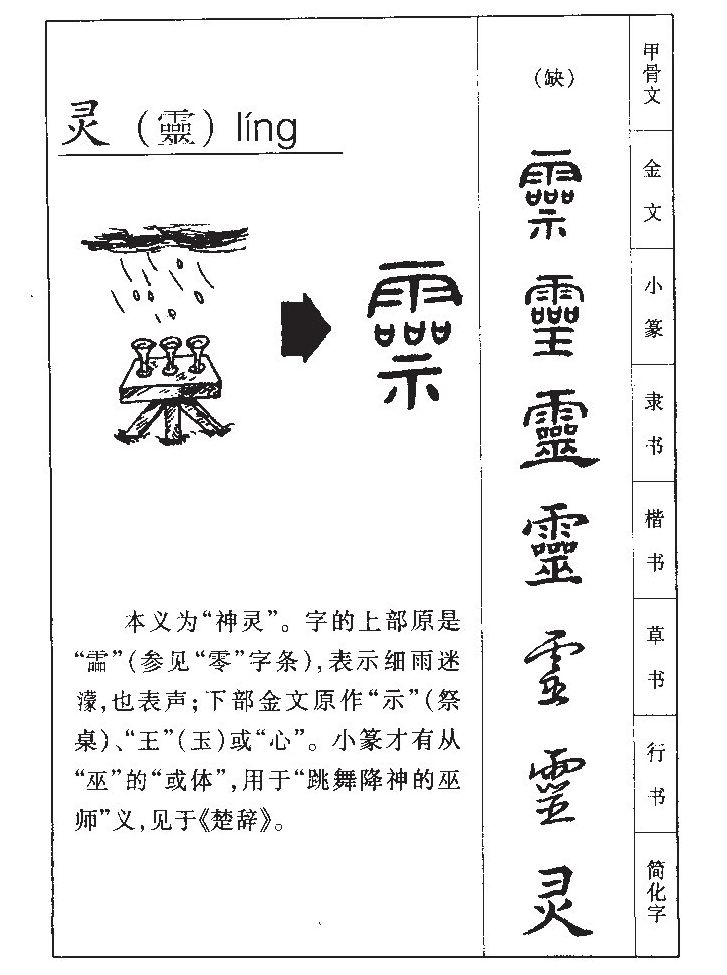 灵（靈）líng
本义为“神灵”。字的上部原是
“霝”（参见“零”字条），表示细雨迷
濛，也表声；下部金文原作“示”（祭
桌）、“王”（玉）或“心”。小篆才有从
“巫”的“或体”，用于“跳舞降神的巫
师”义，见于《楚辞》。
（缺）
甲骨文
金文
小篆
靈
隶书
靈
楷书
草书
行书
灵
简化字